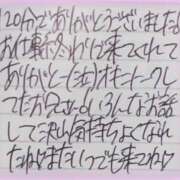 120分でありがとうございました
お仕事終わりに来てくれて
ありがとー(泣)オモニトークし
てだカラだよいろんなお話
して沢山気持ちよくなれ
たねまたいつでも来てね♡